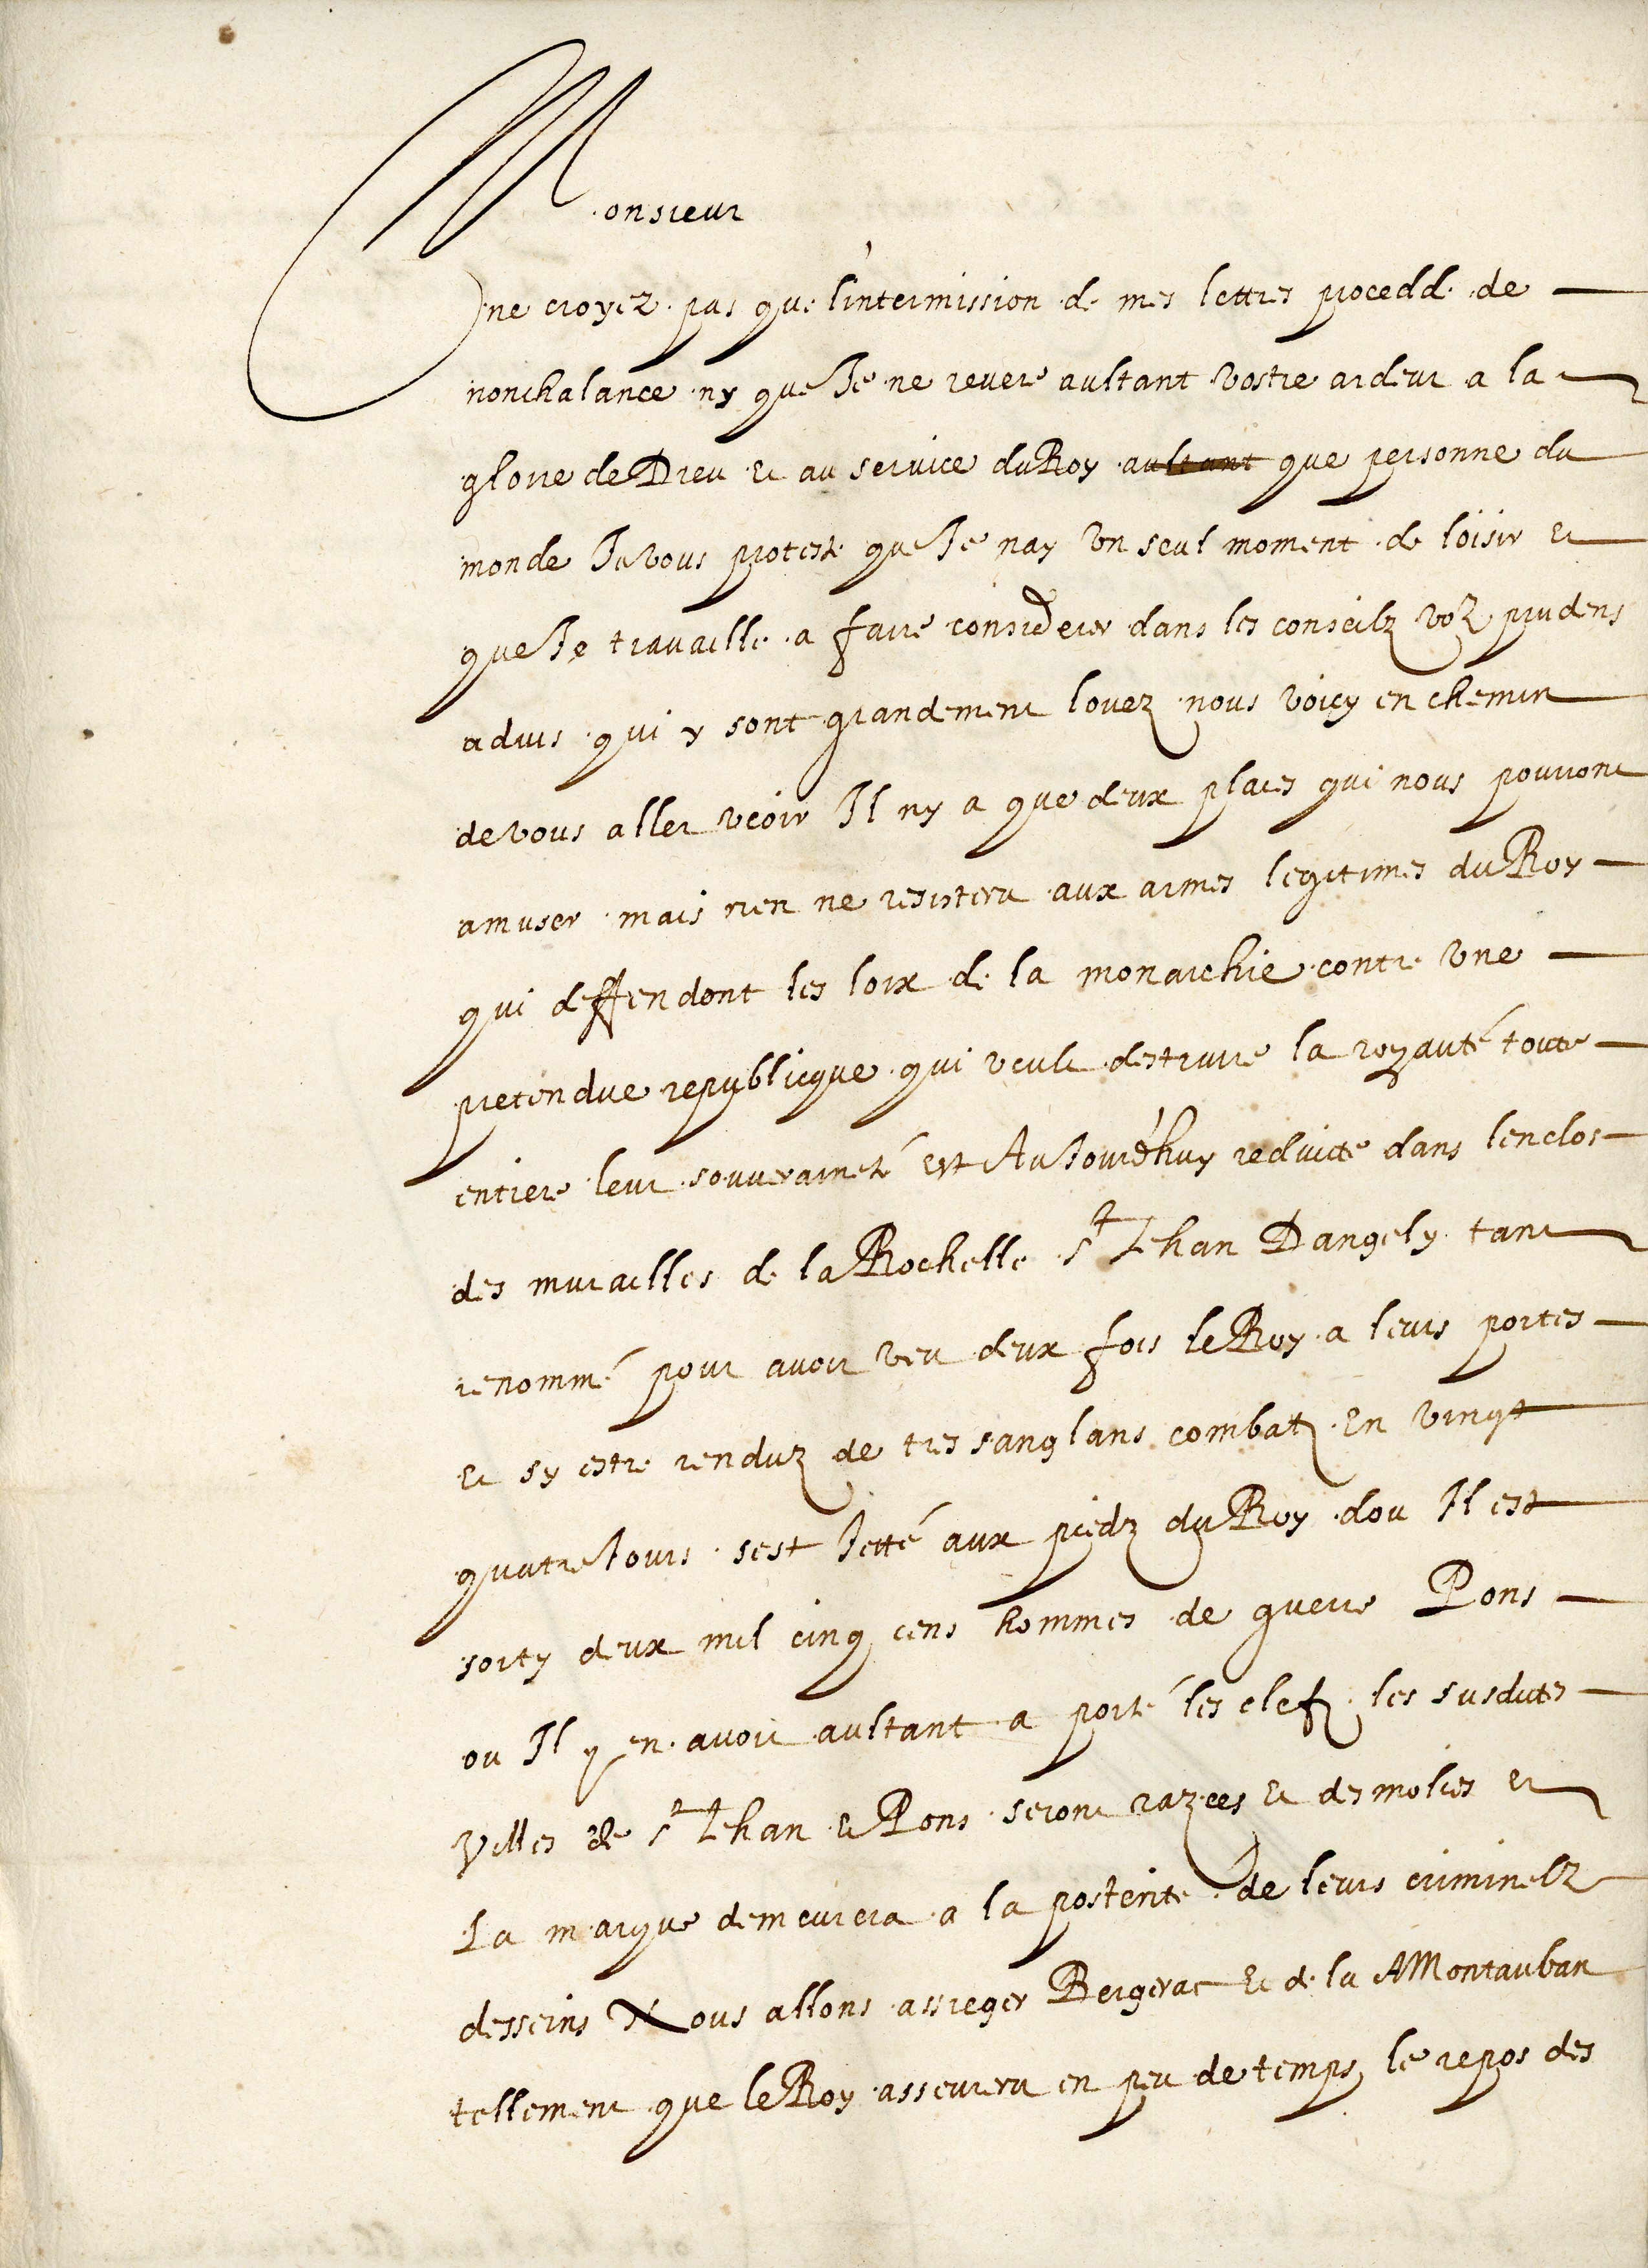 Monsieur
ne croyez pas que lintermission de mes lettres procedde de
nonchalance ny que Je ne revere aultant vostre ardeur a la
gloire de Dieu et au service du Roy aultant que personne du
monde Je vous proteste que Je nay un seul moment de loisir et
que Je travaille a faire considerer dans les conseilz voz prudens
advis qui y sont grandement louez nous voicy en chemin
de vous aller veoir Il ny a que deux places qui nous pouront
amuser mais rien ne resistera aux armes legitimes du Roy
qui deffendent les loix de la monarchie contre une
pretendue republicque qui veult destruire la royauté toute
entiere leur souveraineté est AuJourdhuy reduicte dans lenclos
des murailles de la Rochelle St Jehan Dangely tant
renommé pour avoir veu deux fois le Roy a leurs portes
et sy estre renduz de tres sanglans combatz En vingt
quatre Jours sest Jetté aux piedz du Roy dou Il est
sorty deux mil cinq cens hommes de guerre Pons
ou Il y en avoit aultant a porté les clefz les susdites
Villes de St Jehan et Pons seront razees et desmolies et
La marque demeurera a la posterité de leurs criminelz
desseins Nous allons assieger Bergerac et de la A Montauban
tellement que le Roy asseurera en peu de temps le repos des